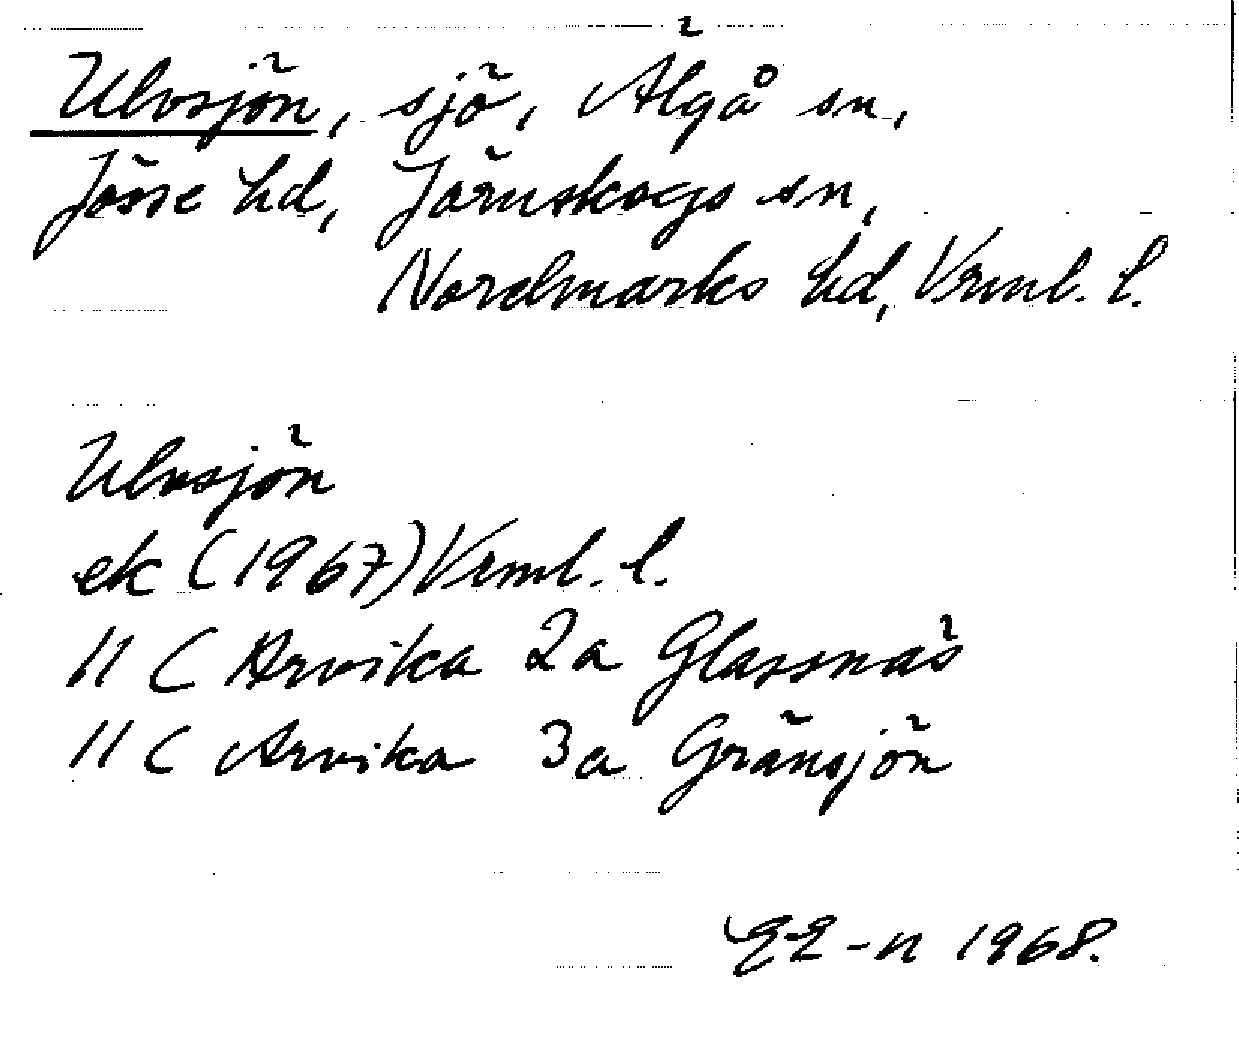 Ulvsjön, sjö, Älgå sn,
Jösse hd, Järnskogs sn,
Nordmarks hd, Vrml. l.
Ulvsjön
ek (1967) Vrml. l.
11 C Arvika 2a Glassnäs
11 C Arvika 3a Gränsjön
1968.